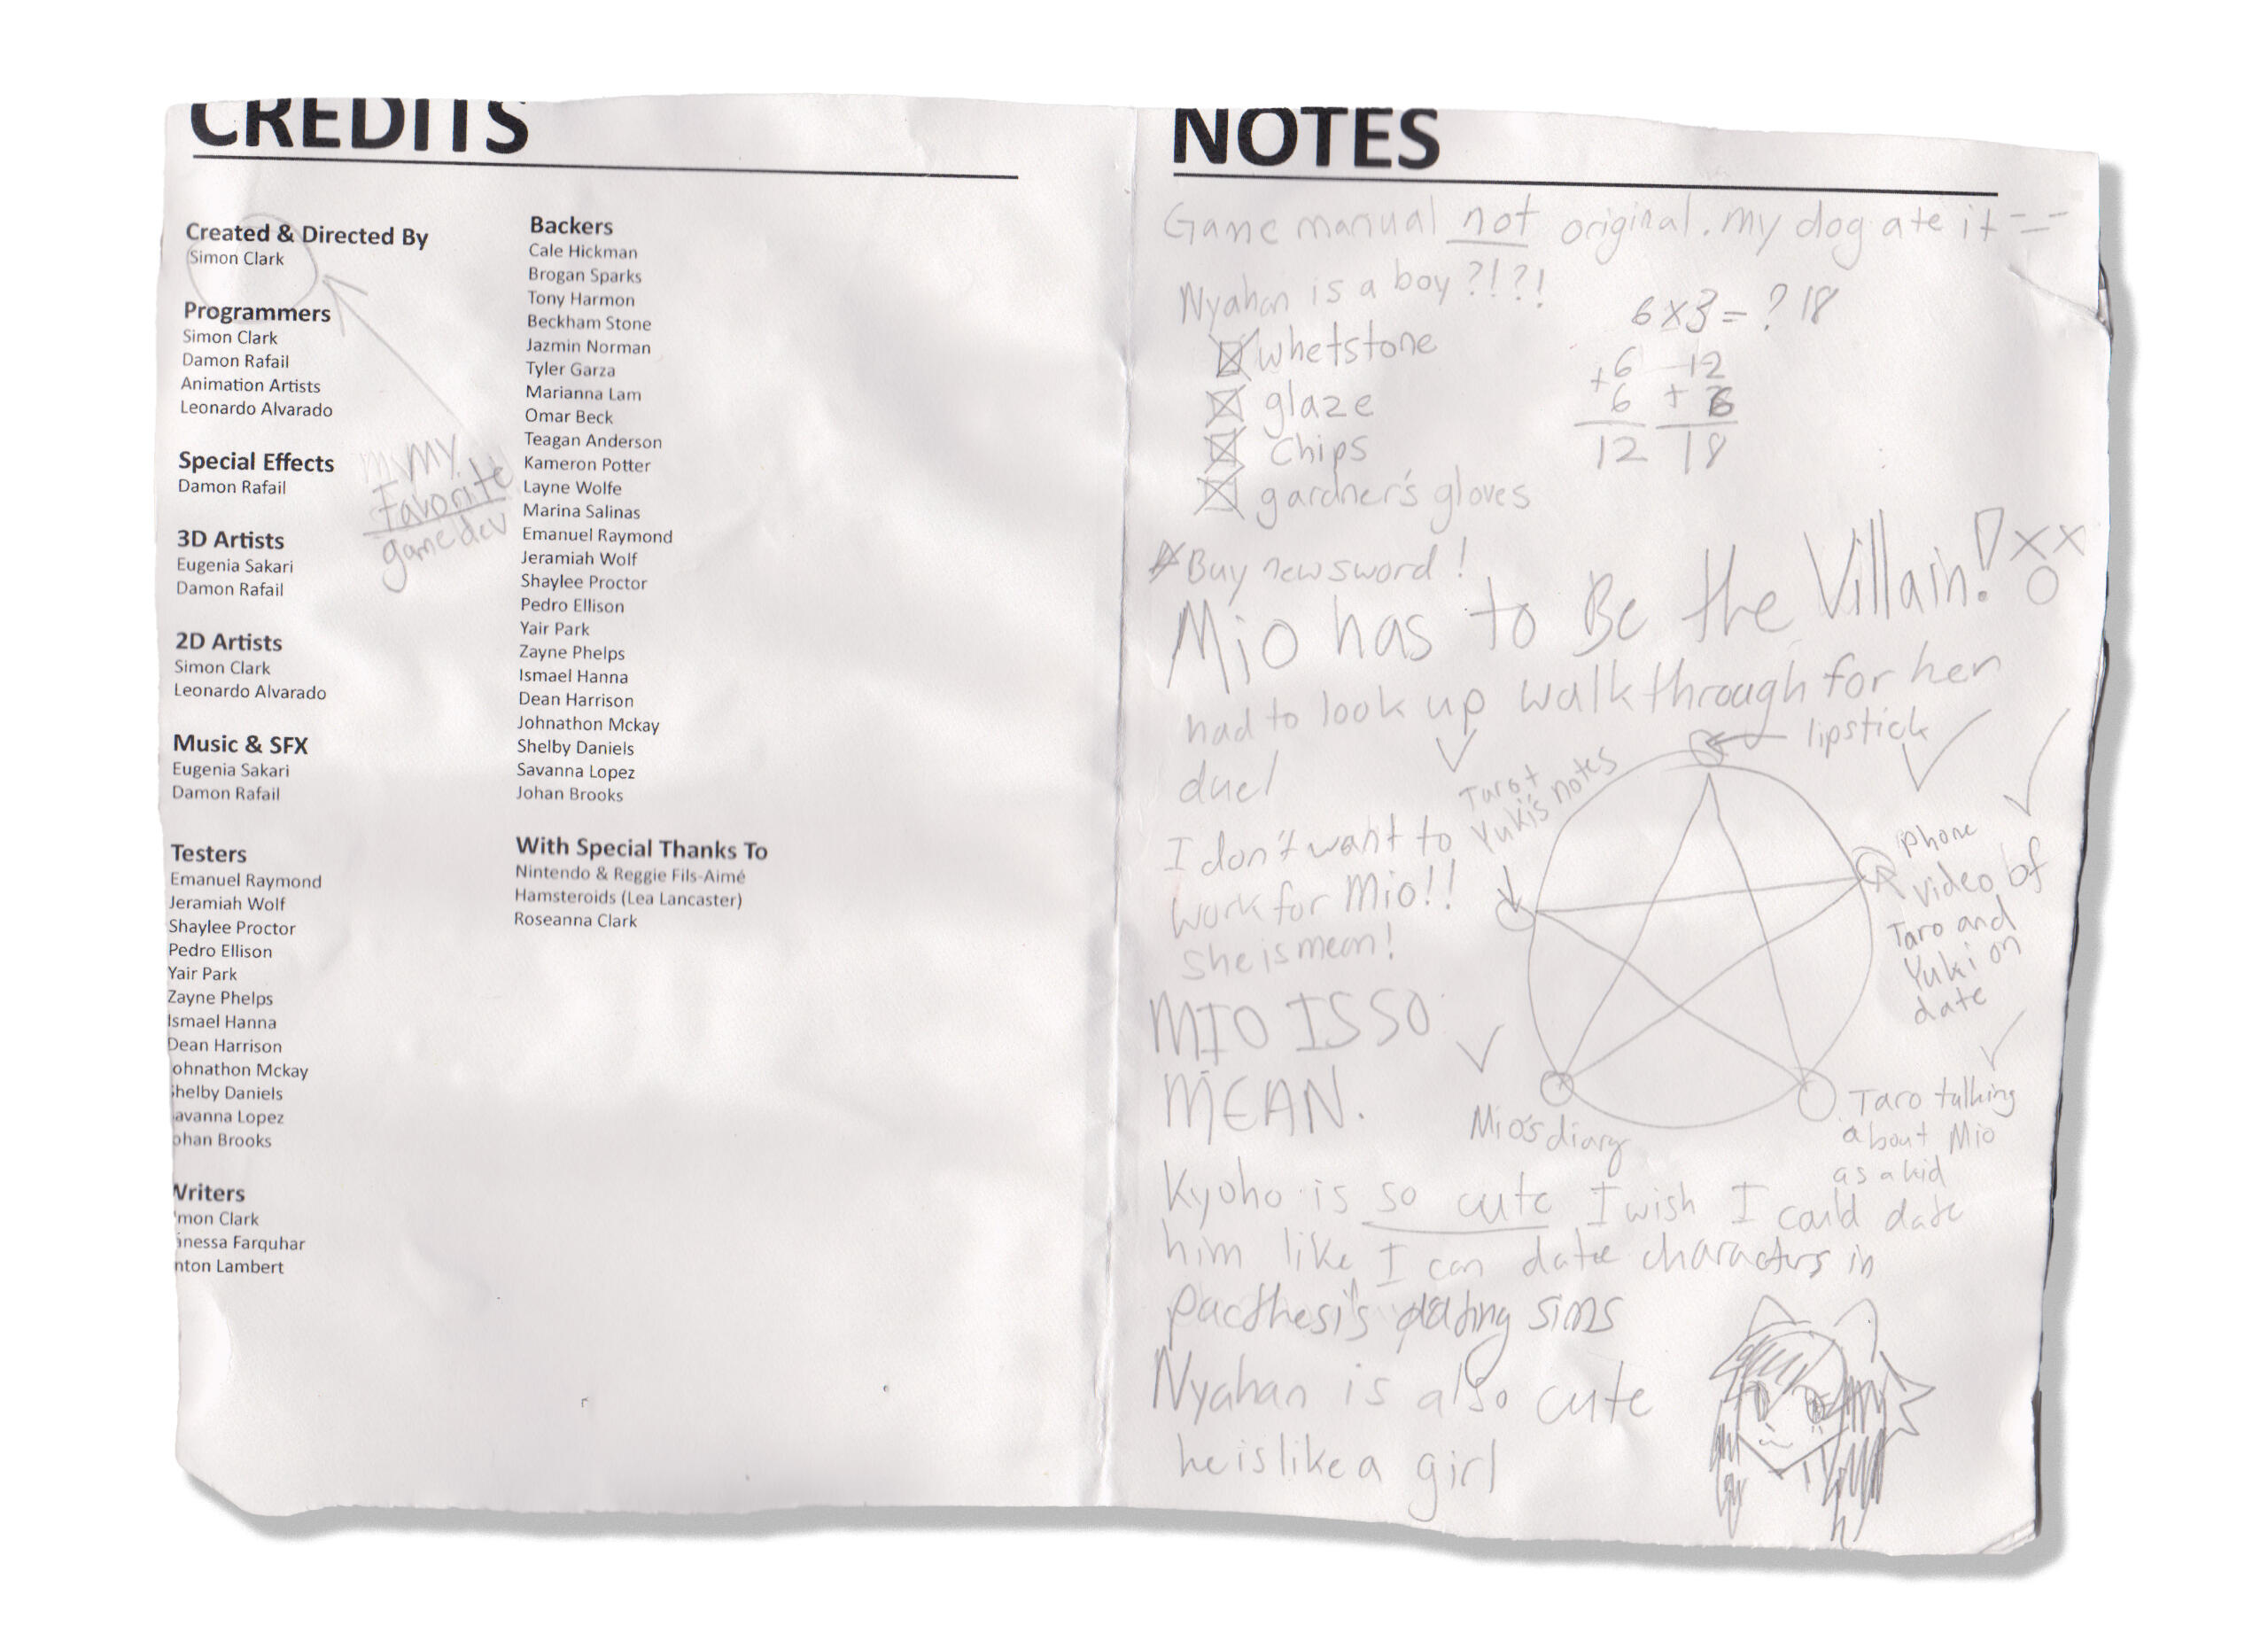 CREDITS
Created & Directed By
Simon Clark
Programmers
Simon Clark
Damon Rafail
Animation Artists
Leonardo Alvarado
Special Effects
Damon Rafail
3D Artists
Eugenia Sakari
Damon Rafail
2D Artists
Simon Clark
Leonardo Alvarado
Music & SFX
Eugenia Sakari
Damon Rafail
Testers
Emanuel Raymond
Jeramiah Wolf
Shaylee Proctor
Pedro Ellison
Yair Park
Zayne Phelps
Ismael Hanna
Dean Harrison
ohnathon Mckay
helby Daniels
avanna Lopez
ohan Brooks
Writers
mon Clark
nessa Farquhar
nton Lambert
My
favorite
game dev
Backers
Cale Hickman
Brogan Sparks
Tony Harmon
Beckham Stone
Jazmin Norman
Tyler Garza
Marianna Lam
Omar Beck
Teagan Anderson
Kameron Potter
Layne Wolfe
Marina Salinas
Emanuel Raymond
Jeramiah Wolf
Shaylee Proctor
Pedro Ellison
Yair Park
Zayne Phelps
Ismael Hanna
Dean Harrison
Johnathon Mckay
Shelby Daniels
Savanna Lopez
Johan Brooks
With Special Thanks To
Nintendo & Reggie Fils-Aimé
Hamsteroids (Lea Lancaster)
Roseanna Clark
NOTES
Game manual not original. my dog ate it =_=
Nyahan is a boy?!?!
whetstone
glaze
chips
gardner's gloves
6x3=? 18
6 12
+6 +6
12 18
Buy new sword!
Mio has to Be the Villain!
had to look up walkthrough for her
duel
I don't want to
work for Mio!!
She is mean!
MIO IS SO
MEAN.
lipstick
Taro +
Yuki's notes
phone
video of
Taro and
Yuki on
date
Mio's diary
Taro talking
about Mio
as a kid
Kyoho is so cute I wish I could date
him like I can date characters in
pacthesi's dating sims
Nyahan is also cute
he is like a girl